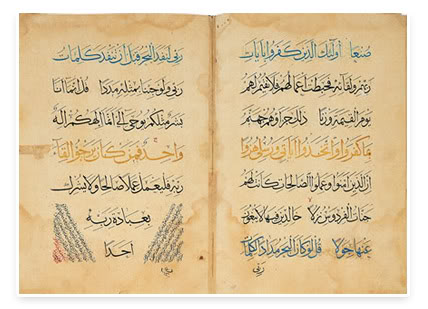 صنعا اولئك الذين كفروا بايات
ربهم ولقائه فحبطت اعمالهم فلا نقيم لهم
يوم القيمة وزنا ذلك جزاؤهم جهنم
بما كفروا واتخذوا اياتي ورسلي هزوا
ان الذين امنوا وعملوا الصالحات كانت لهم
جنات الفردوس نزلا خالدين فيها لا يبغون
عنها حولا قل لو كان البحر مدادا لكلمات
ربي
ربي لنفد البحر قبل ان تنفد كلمات
ربي ولو جئنا بمثله مددا قل انما انا
بشر مثلكم يوحى الي انما الهكم اله
واحد فمن كان يرجو لقاء
ربه فليعمل عملا صالحا ولا يشرك
بعبادة ربه
احدا